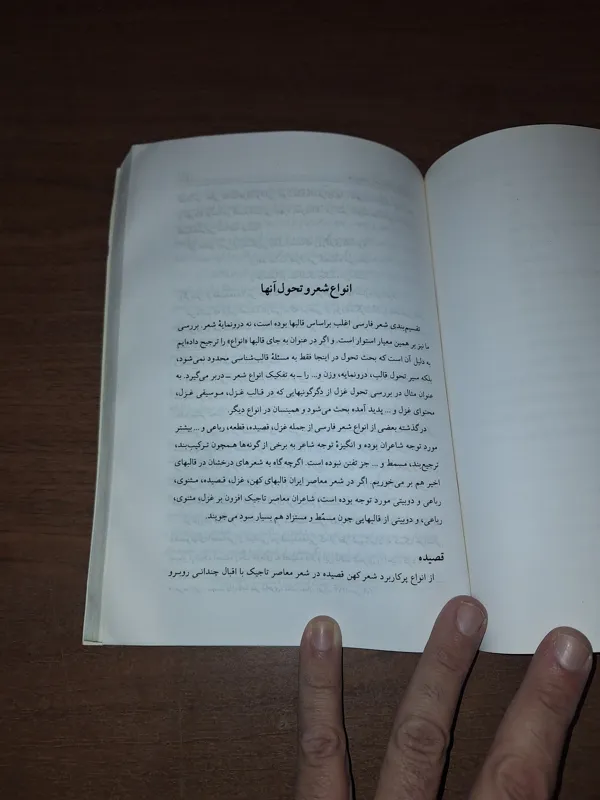 انواع شعر و تحول آنها
تقسیم‌بندی شعر فارسی اغلب براساس قالبها بوده است، نه درونمایهٔ شعر. بررسی
ما نیز بر همین معیار استوار است. و اگر در عنوان به جای قالبها «انواع» را ترجیح داده‌ایم
به دلیل آن است که بحث تحول در اینجا فقط به مسئلهٔ قالب‌شناسی محدود نمی‌شود،
بلکه سیر تحول قالب، درونمایه، وزن و... را ــ به تفکیک انواع شعر ــ دربر می‌گیرد. به
عنوان مثال در بررسی تحول غزل از دگرگونیهایی که در قالب غزل، موسیقی غزل،
محتوای غزل و ... پدید آمده بحث می‌شود و همینسان در انواع دیگر.
درگذشته بعضی از انواع شعر فارسی از جمله غزل، قصیده، قطعه، رباعی و ... بیشتر
مورد توجه شاعران بوده و انگیزهٔ توجه شاعر به برخی از گونه‌ها همچون ترکیب‌بند،
ترجیع‌بند، مسمط و ... جز تفنن نبوده است. اگرچه گاه به شعرهای درخشان در قالبهای
اخیر هم بر می‌خوریم. اگر در شعر معاصر ایران قالبهای کهن، غزل، قصیده، مثنوی،
رباعی و دوبیتی مورد توجه بوده است، شاعران معاصر تاجیک افزون بر غزل، مثنوی،
رباعی، و دوبیتی از قالبهایی چون مسمّط و مستزاد هم بسیار سود می‌جویند.
قصیده
از انواع پرکاربرد شعر کهن قصیده در شعر معاصر تاجیک با اقبال چندانی روبرو